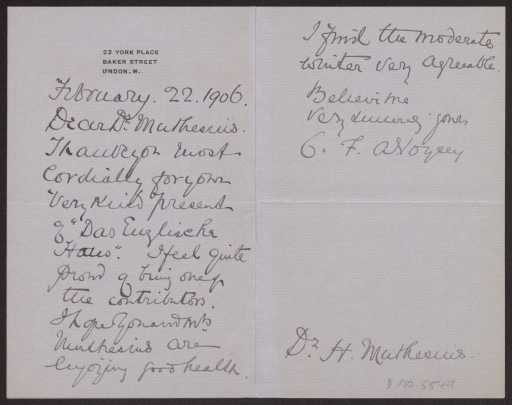 23 YORK PLACE
BAKER STREET
LONDON. W.
February. 22. 1906.
Dear Dr Muthesius.
Thank you most
Cordially for your
very kind present
of "Das Englische
Haus". I feel quite
proud of being one of
the contributors.
I hope you and Mrs
Muthesius are
enjoying good health.
I find the moderate
winter very agreeable.
Believe me
very sincerely yours
C. F. A Voysey
Dr H. Muthesius.